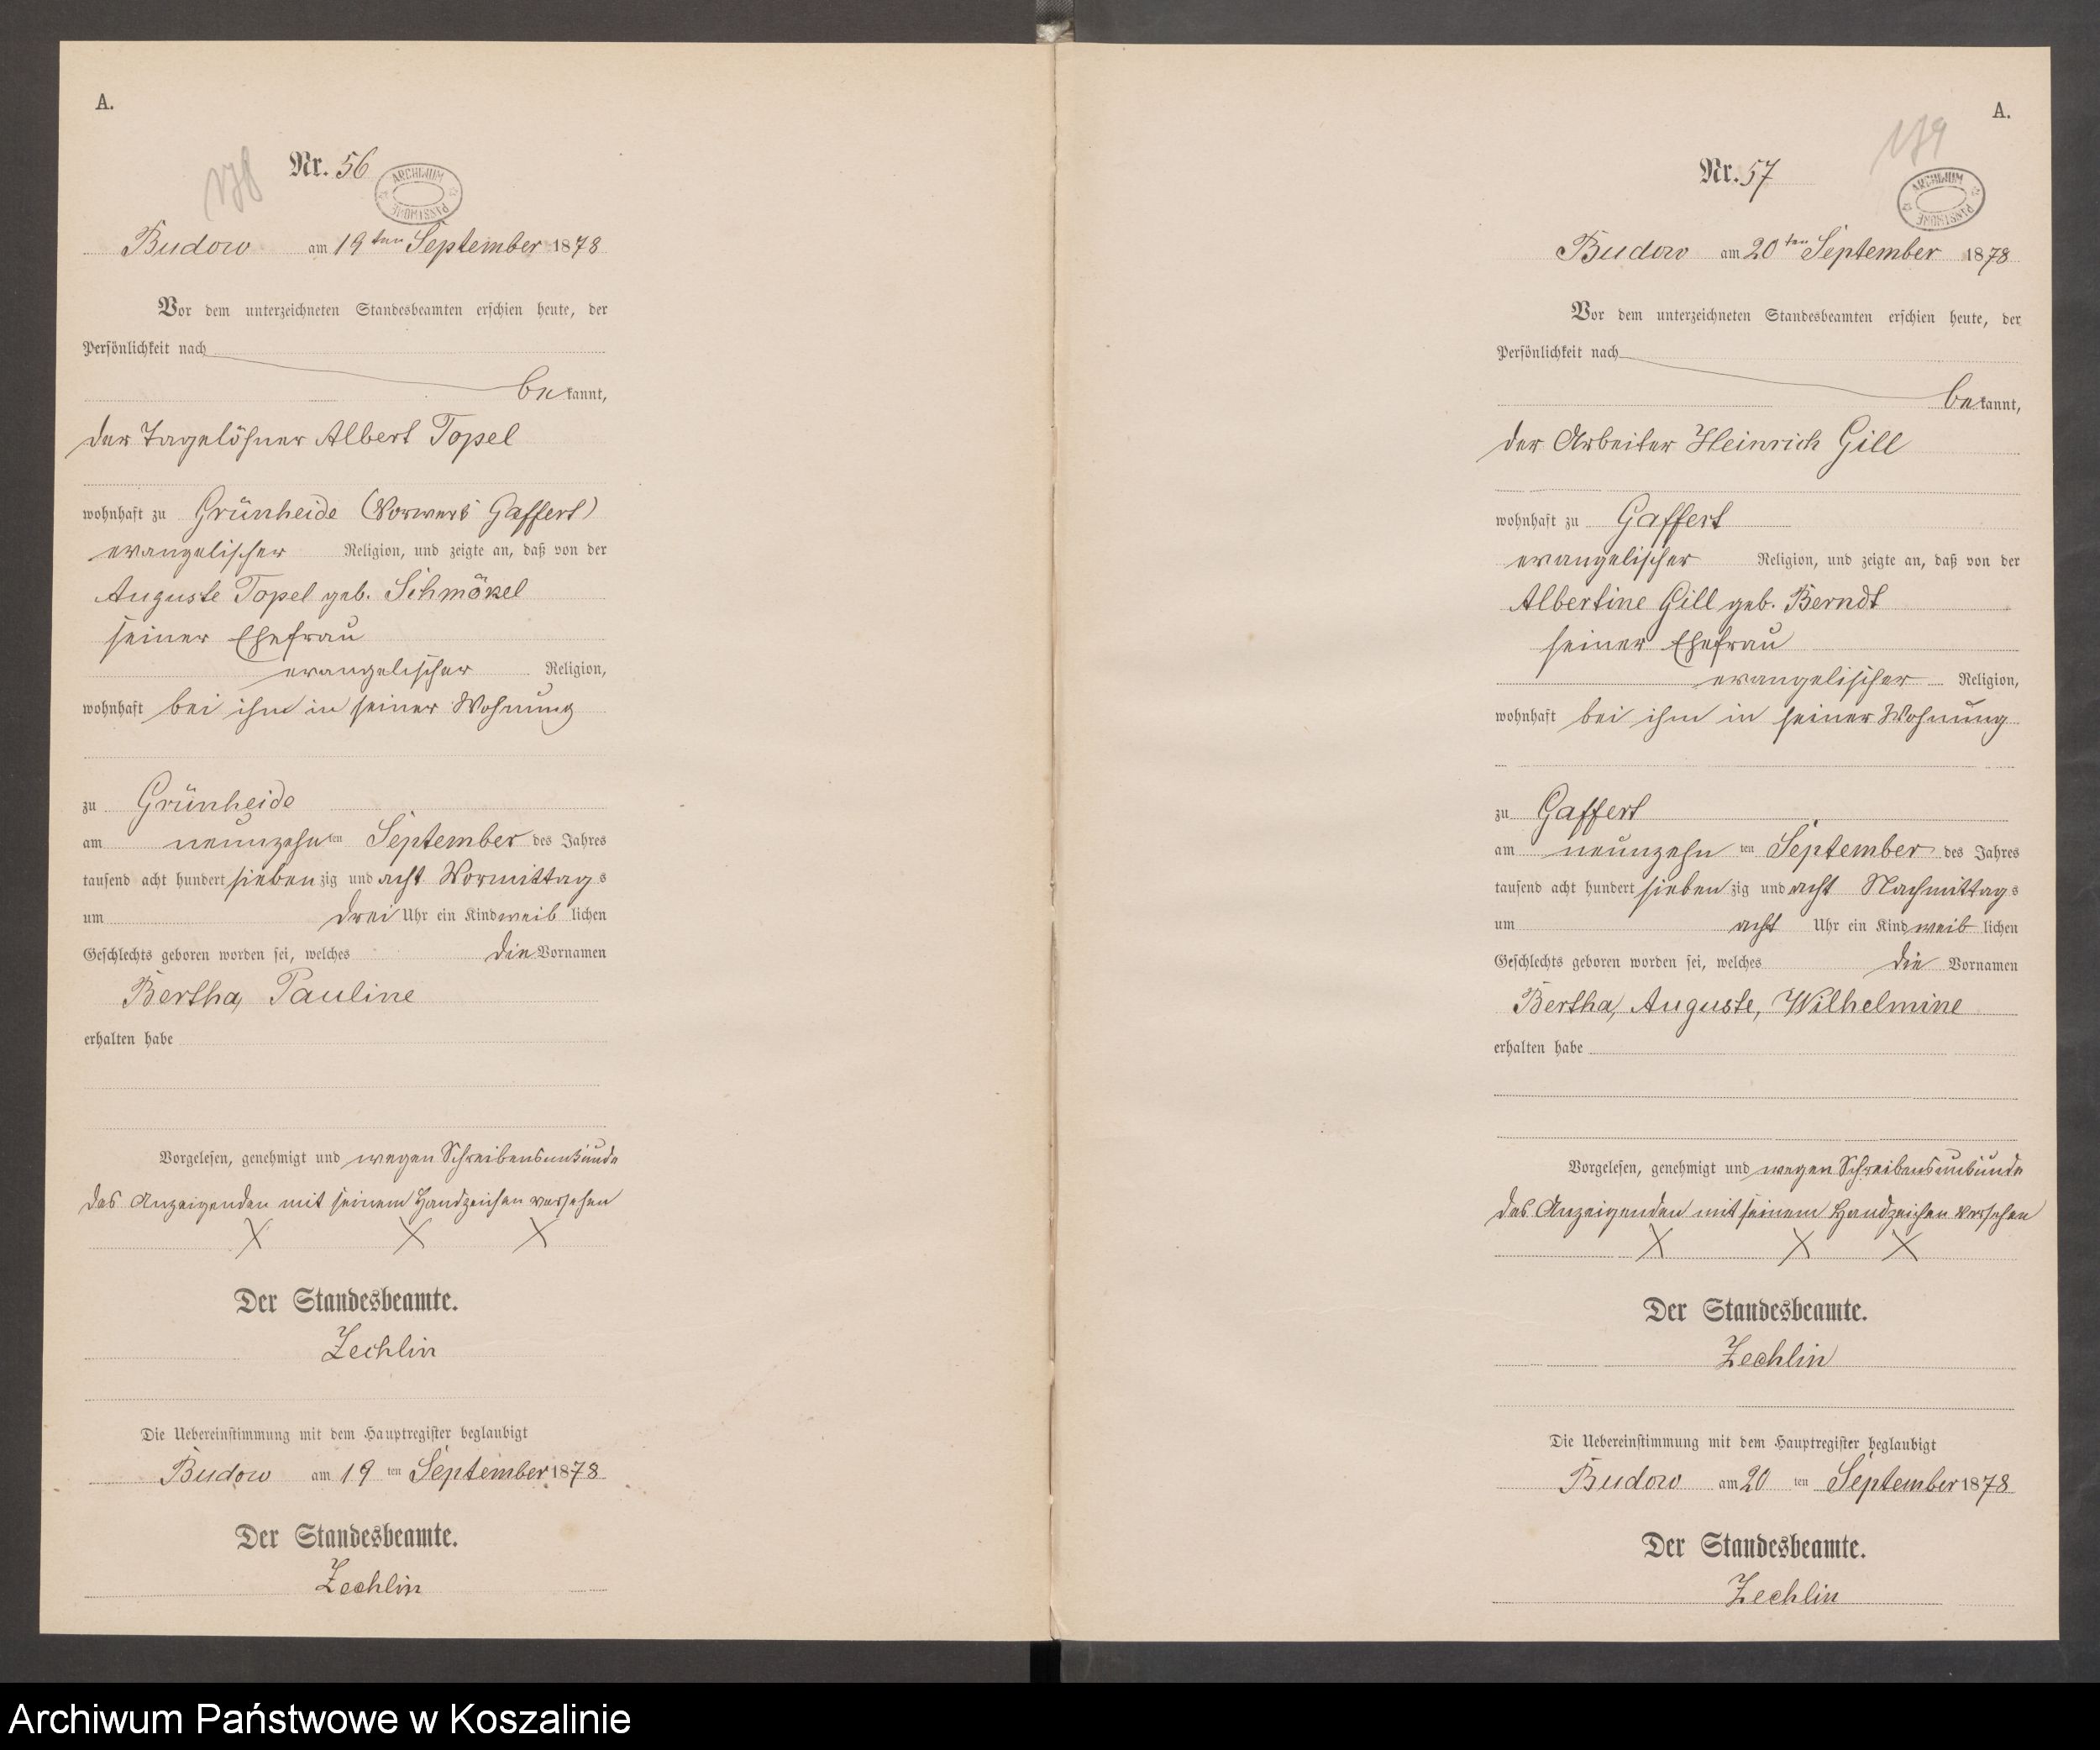 A.
178
Nr. 56
ARCHIWUM PAŃSTWOWE
Budow am 19ten September 1878
Vor dem unterzeichneten Standesbeamten erschien heute, der
Persönlichkeit nach
bekannt,
der Tagelöhner Albert Topel
wohnhaft zu Grünheide (Vorwerk Gaffert)
evangelischer Religion, und zeigte an, daß von der
Auguste Topel geb. Schmökel
seiner Ehefrau
evangelischer Religion,
wohnhaft bei ihm in seiner Wohnung
zu Grünheide
am neunzehnten September des Jahres
tausend acht hundert siebenzig und acht Vormittags
um drei Uhr ein Kind weiblichen
Geschlechts geboren worden sei, welches die Vornamen
Bertha, Pauline
erhalten habe
Vorgelesen, genehmigt und wegen Schreibensunkunde
des Anzeigenden mit seinem Handzeichen versehen
X X X
Der Standesbeamte.
Zechlin
Die Uebereinstimmung mit dem Hauptregister beglaubigt
Budow am 19ten September 1878
Der Standesbeamte.
Zechlin
A.
179
Nr. 57
ARCHIWUM PAŃSTWOWE
Budow am 20ten September 1878
Vor dem unterzeichneten Standesbeamten erschien heute, der
Persönlichkeit nach
bekannt,
der Arbeiter Heinrich Gill
wohnhaft zu Gaffert
evangelischer Religion, und zeigte an, daß von der
Albertine Gill geb. Berndt
seiner Ehefrau
evangelischer Religion,
wohnhaft bei ihm in seiner Wohnung
zu Gaffert
am neunzehnten September des Jahres
tausend acht hundert siebenzig und acht Nachmittags
um acht Uhr ein Kind weiblichen
Geschlechts geboren worden sei, welches die Vornamen
Bertha, Auguste, Wilhelmine
erhalten habe
Vorgelesen, genehmigt und wegen Schreibensunkunde
des Anzeigenden mit seinem Handzeichen versehen
X X X
Der Standesbeamte.
Zechlin
Die Uebereinstimmung mit dem Hauptregister beglaubigt
Budow am 20ten September 1878
Der Standesbeamte.
Zechlin
Archiwum Państwowe w Koszalinie